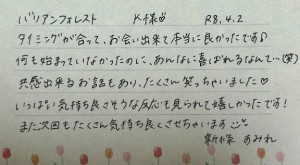 バリアンフォレスト　K様♡　R8.4.2
タイミングが合って、お会い出来て本当に良かったです♪
何も始まっていなかったのに、あんなに喜ばれるなんて…(笑)
共感出来るお話もあり、たくさん笑っちゃいました♡
いっぱい気持ち良さそうな反応も見られて嬉しかったです!
また次回もたくさん気持ち良くさせちゃいます
新條 すみれ